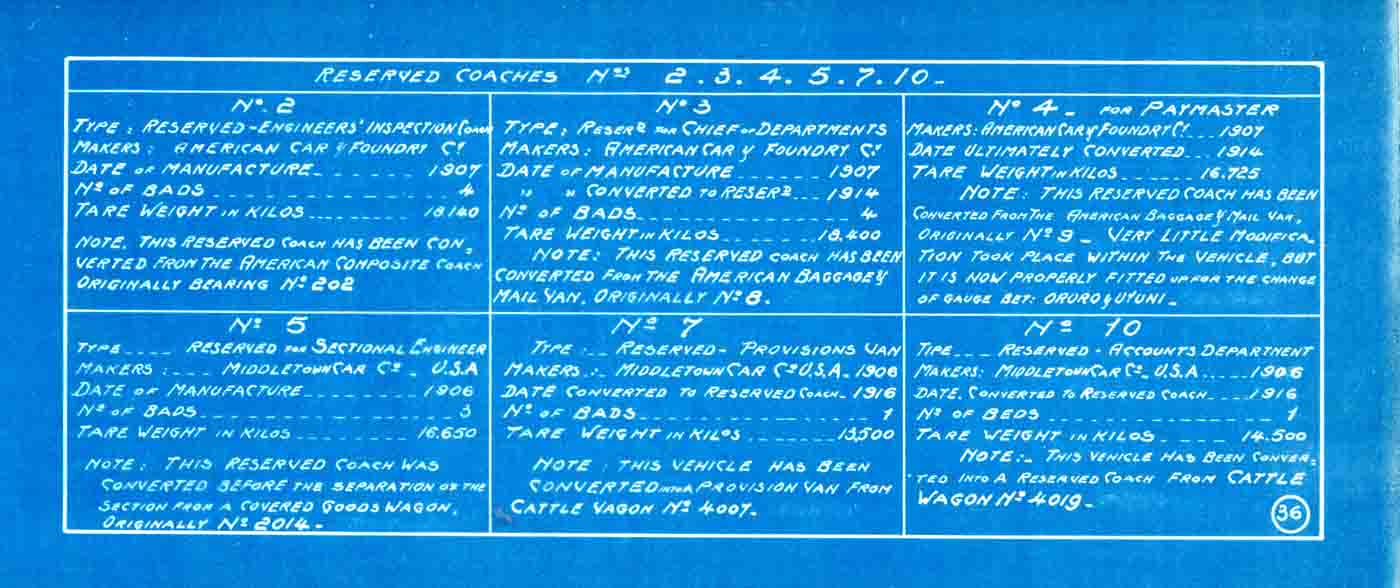 RESERVED COACHES Nos 2.3.4.5.7.10-
No. 2
TYPE: RESERVED-ENGINEERS' INSPECTION COACH
MAKERS: AMERICAN CAR y FOUNDRY Cy
DATE OF MANUFACTURE 1907
No OF BADS 4
TARE WEIGHT IN KILOS 18.140
NOTE. THIS RESERVED COACH HAS BEEN CON,
VERTED FROM THE AMERICAN COMPOSITE COACH
ORIGINALLY BEARING No 202
No 3
TYPE: RESERD FOR CHIEF OF DEPARTMENTS
MAKERS: AMERICAN CAR y FOUNDRY Cy
DATE OF MANUFACTURE 1907
" " CONVERTED TO RESERD 1914
No OF BADS 4
TARE WEIGHT IN KILOS 18.400
NOTE: THIS RESERVED COACH HAS BEEN
CONVERTED FROM THE AMERICAN BAGGAGE y
MAIL VAN. ORIGINALLY No 8.
No 4- FOR PAYMASTER
MAKERS: AMERICAN CAR y FOUNDRY Cy. 1907
DATE ULTIMATELY CONVERTED 1914
TARE WEIGHT IN KILOS 16.725
NOTE: THIS RESERVED COACH HAS BEEN
CONVERTED FROM THE AMERICAN BAGGAGE y MAIL VAN,
ORIGINALLY No 9- VERY LITTLE MODIFICA-
TION TOOK PLACE WITHIN THE VEHICLE, BUT
IT IS NOW PROPERLY FITTED UP FOR THE CHANGE
OF GAUGE BET: ORURO y UYUNI-
No 5
TYPE RESERVED FOR SECTIONAL ENGINEER
MAKERS: MIDDLETOWN CAR Co- U.S.A
DATE OF MANUFACTURE 1906
No OF BADS 3
TARE WEIGHT IN KILOS 16.650
NOTE: THIS RESERVED COACH WAS
CONVERTED BEFORE THE SEPARATION OF THE
SECTION FROM A COVERED GOODS WAGON,
ORIGINALLY No 2014-
No 7
TYPE: RESERVED- PROVISIONS VAN
MAKERS: MIDDLETOWN CAR Co U.S.A- 1906
DATE CONVERTED TO RESERVED COACH- 1916
No OF BADS 1
TARE WEIGHT IN KILOS 13,500
NOTE: THIS VEHICLE HAS BEEN
CONVERTED INTO A PROVISION VAN FROM
CATTLE VAGON No 4007-
No 10
TIPE RESERVED- ACCOUNTS DEPARTMENT
MAKERS: MIDDLETOWN CAR Co- U.S.A 1906
DATE. CONVERTED TO RESERVED COACH 1916
No OF BEDS 1
TARE WEIGHT IN KILOS 14.500
NOTE:- THIS VEHICLE HAS BEEN CONVER,
TED INTO A RESERVED COACH FROM CATTLE
WAGON No 4019-
36